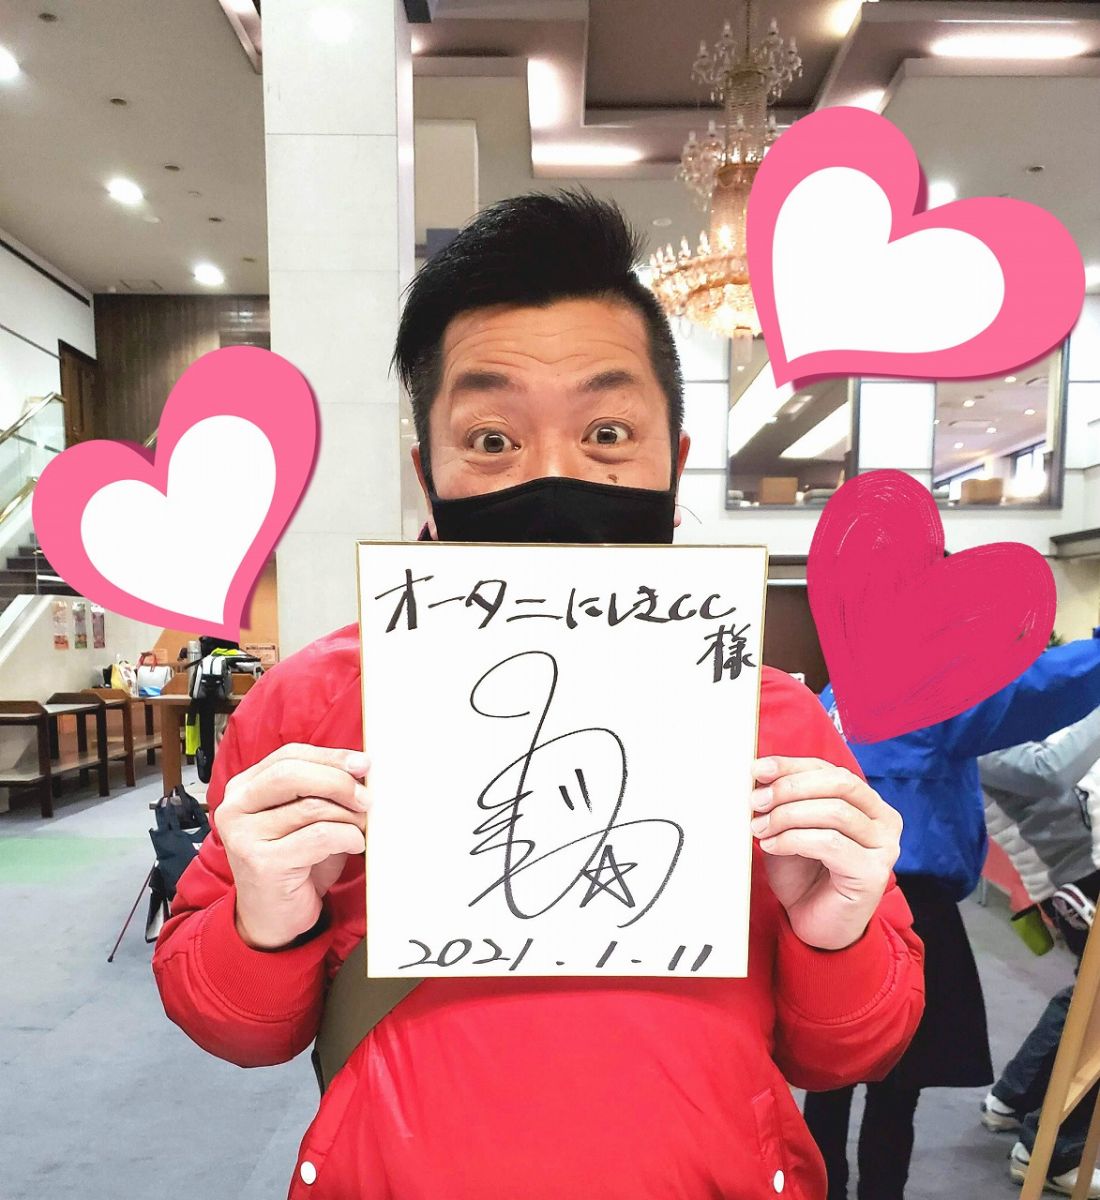 オータニにしきCC
様
2021.1.11